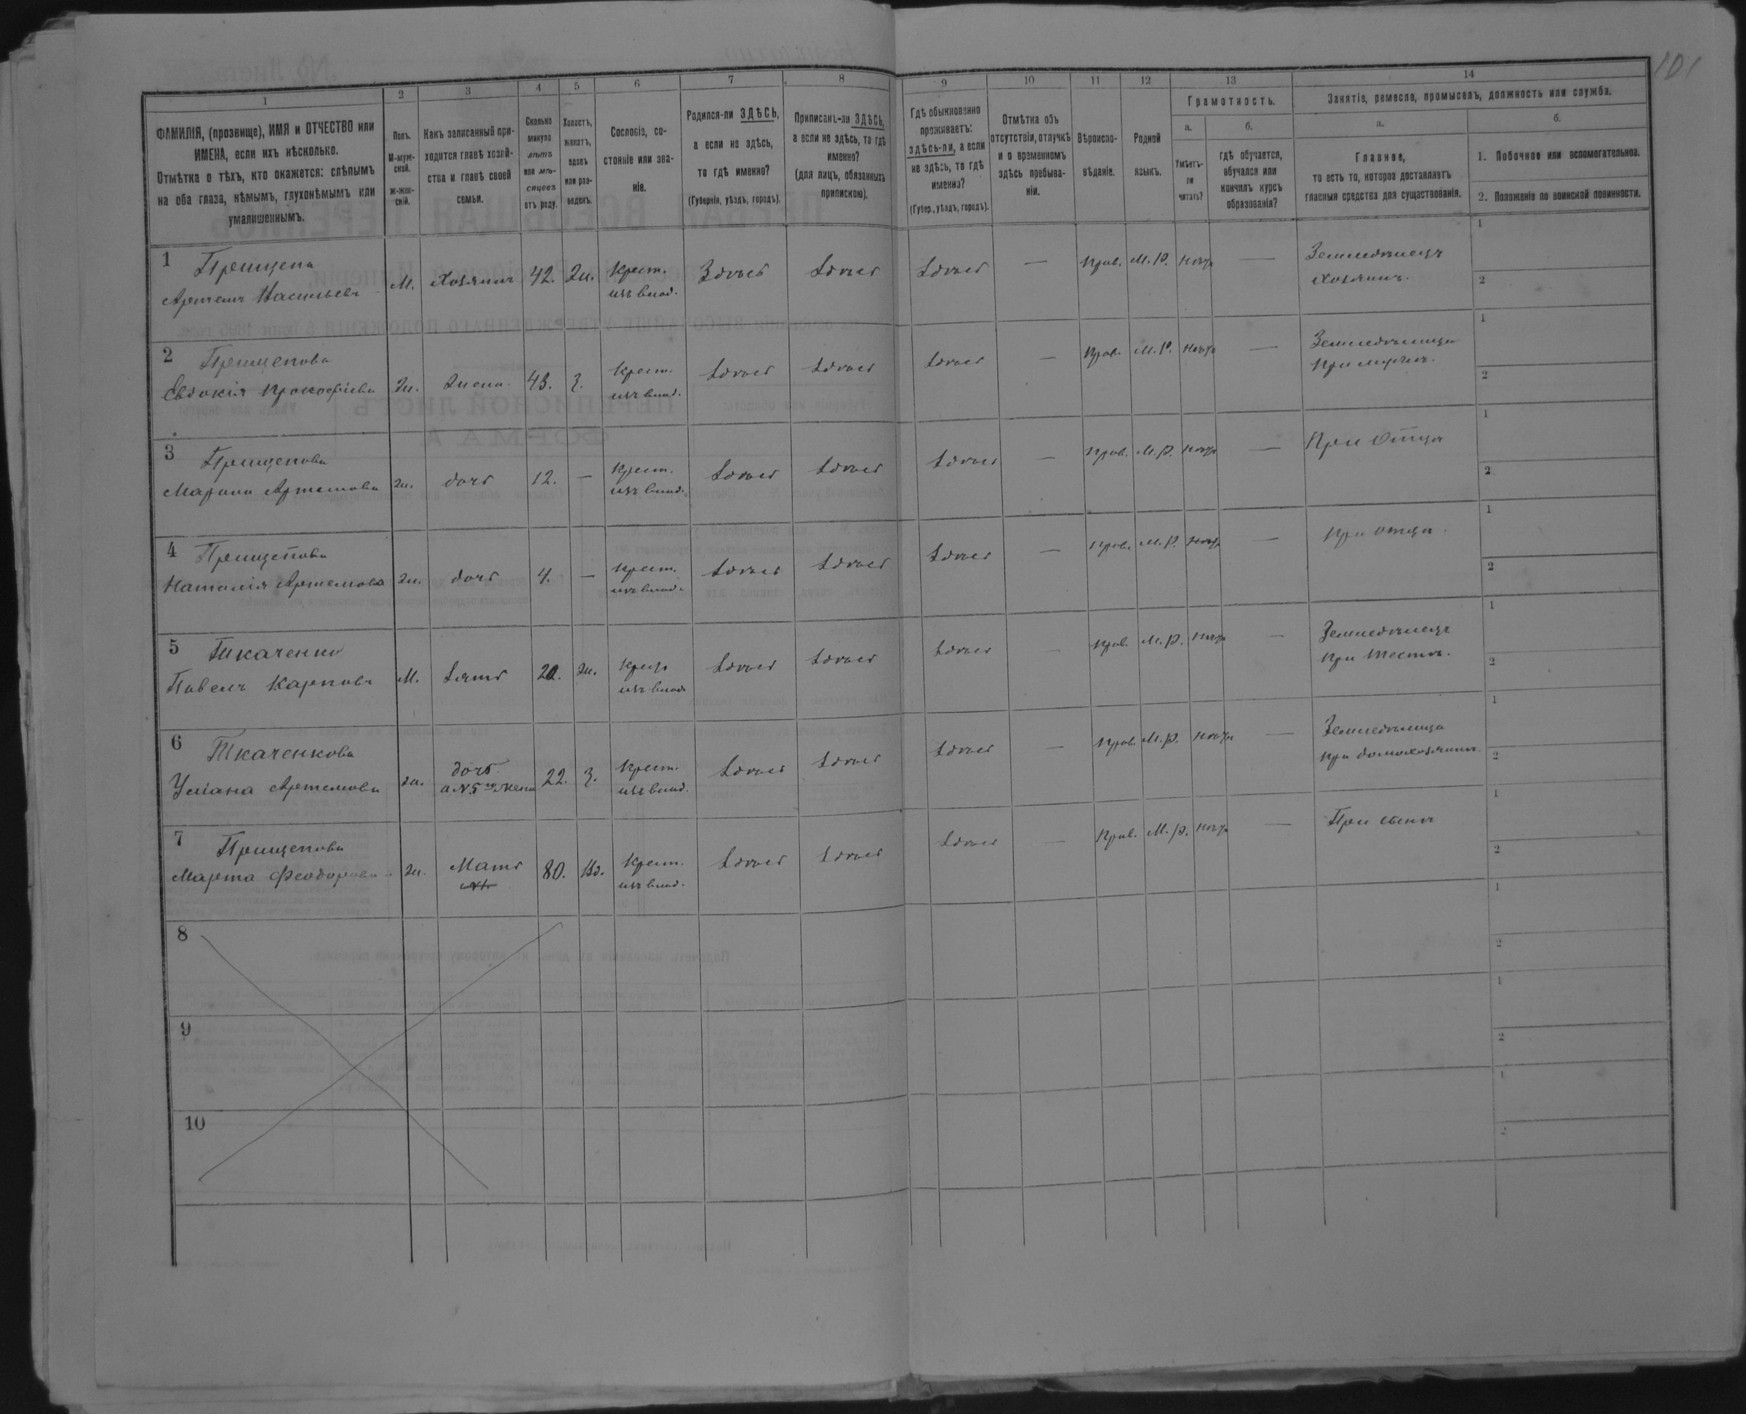 101
1 2 3 4 5 6 7 8 9 10 11 12 13 14
ФАМИЛІЯ, (прозвище), ИМЯ и ОТЧЕСТВО или
ИМЕНА, если ихъ нѣсколько.
Отмѣтка о тѣхъ, кто окажется: слѣпымъ
на оба глаза, нѣмымъ, глухонѣмымъ или
умалишеннымъ.
Полъ.
М-муж-
ской.
Ж-жен-
скій.
Какъ записанный при-
ходится главѣ хозяй-
ства и главѣ своей
семьи.
Сколько
минуло
лѣтъ
или мѣ-
сяцевъ
отъ роду.
Холостъ,
женатъ,
вдовъ
или раз-
веденъ.
Сословіе, со-
стояніе или зва-
ніе.
Родился-ли ЗДѢСЬ,
а если не здѣсь,
то гдѣ именно?
(Губернія, уѣздъ, городъ).
Приписанъ-ли ЗДѢСЬ,
а если не здѣсь, то гдѣ
именно?
(для лицъ, обязанныхъ
припискою).
Гдѣ обыкновенно
проживаетъ:
здѣсь-ли, а если
не здѣсь, то гдѣ
именно?
(Губер., уѣздъ, городъ).
Отмѣтка объ
отсутствіи, отлучкѣ
и о временномъ
здѣсь пребыва-
ніи.
Вѣроиспо-
вѣданіе.
Родной
языкъ.
Грамотность.
а.
Умѣетъ-
ли
читать?
б.
гдѣ обучается,
обучался или
кончилъ курсъ
образованія?
Занятіе, ремесло, промыселъ, должность или служба.
а.
Главное,
то есть то, которое доставляетъ
главныя средства для существованія.
б.
1. Побочное или вспомогательное.
2. Положеніе по воинской повинности.
1 Прищепа
Артемъ Васильевъ М. Хозяинъ 42. Ж. Крест. изъ влад. Здѣсь Здѣсь Здѣсь — Прав. М.Р. нѣтъ — Земледѣлецъ
хозяинъ.
1
2
2 Прищепова
Евдокія Прокофіева Ж. Жена. 43. З. Крест. изъ влад. Здѣсь Здѣсь Здѣсь — Прав. М.Р. нѣтъ — Земледѣлица
при мужѣ.
1
2
3 Прищепова
Марина Артемова Ж. дочь 12. — Крест. изъ влад. Здѣсь Здѣсь Здѣсь — Прав. М.Р. нѣтъ — При отцѣ
1
2
4 Прищепова
Наталія Артемова Ж. дочь 4. — Крест. изъ влад. Здѣсь Здѣсь Здѣсь — Прав. М.Р. нѣтъ — При отцѣ.
1
2
5 Ткаченко
Павелъ Карповъ М. Зять Ж. Крест. изъ влад. Здѣсь Здѣсь Здѣсь — Прав. М.Р. нѣтъ — Земледѣлецъ
при тестѣ.
1
2
6 Ткаченкова
Уліана Артемова Ж. дочь.
а №5го жена 22. З. Крест. изъ влад. Здѣсь Здѣсь Здѣсь — Прав. М.Р. нѣтъ — Земледѣлица
при домохозяинѣ.
1
2
7 Прищепова
Марта Феодорова Ж. Мать 80. Вд. Крест. изъ влад. Здѣсь Здѣсь Здѣсь — Прав. М.Р. нѣтъ — При сынѣ
1
2
8
1
2
9
1
2
10
1
2